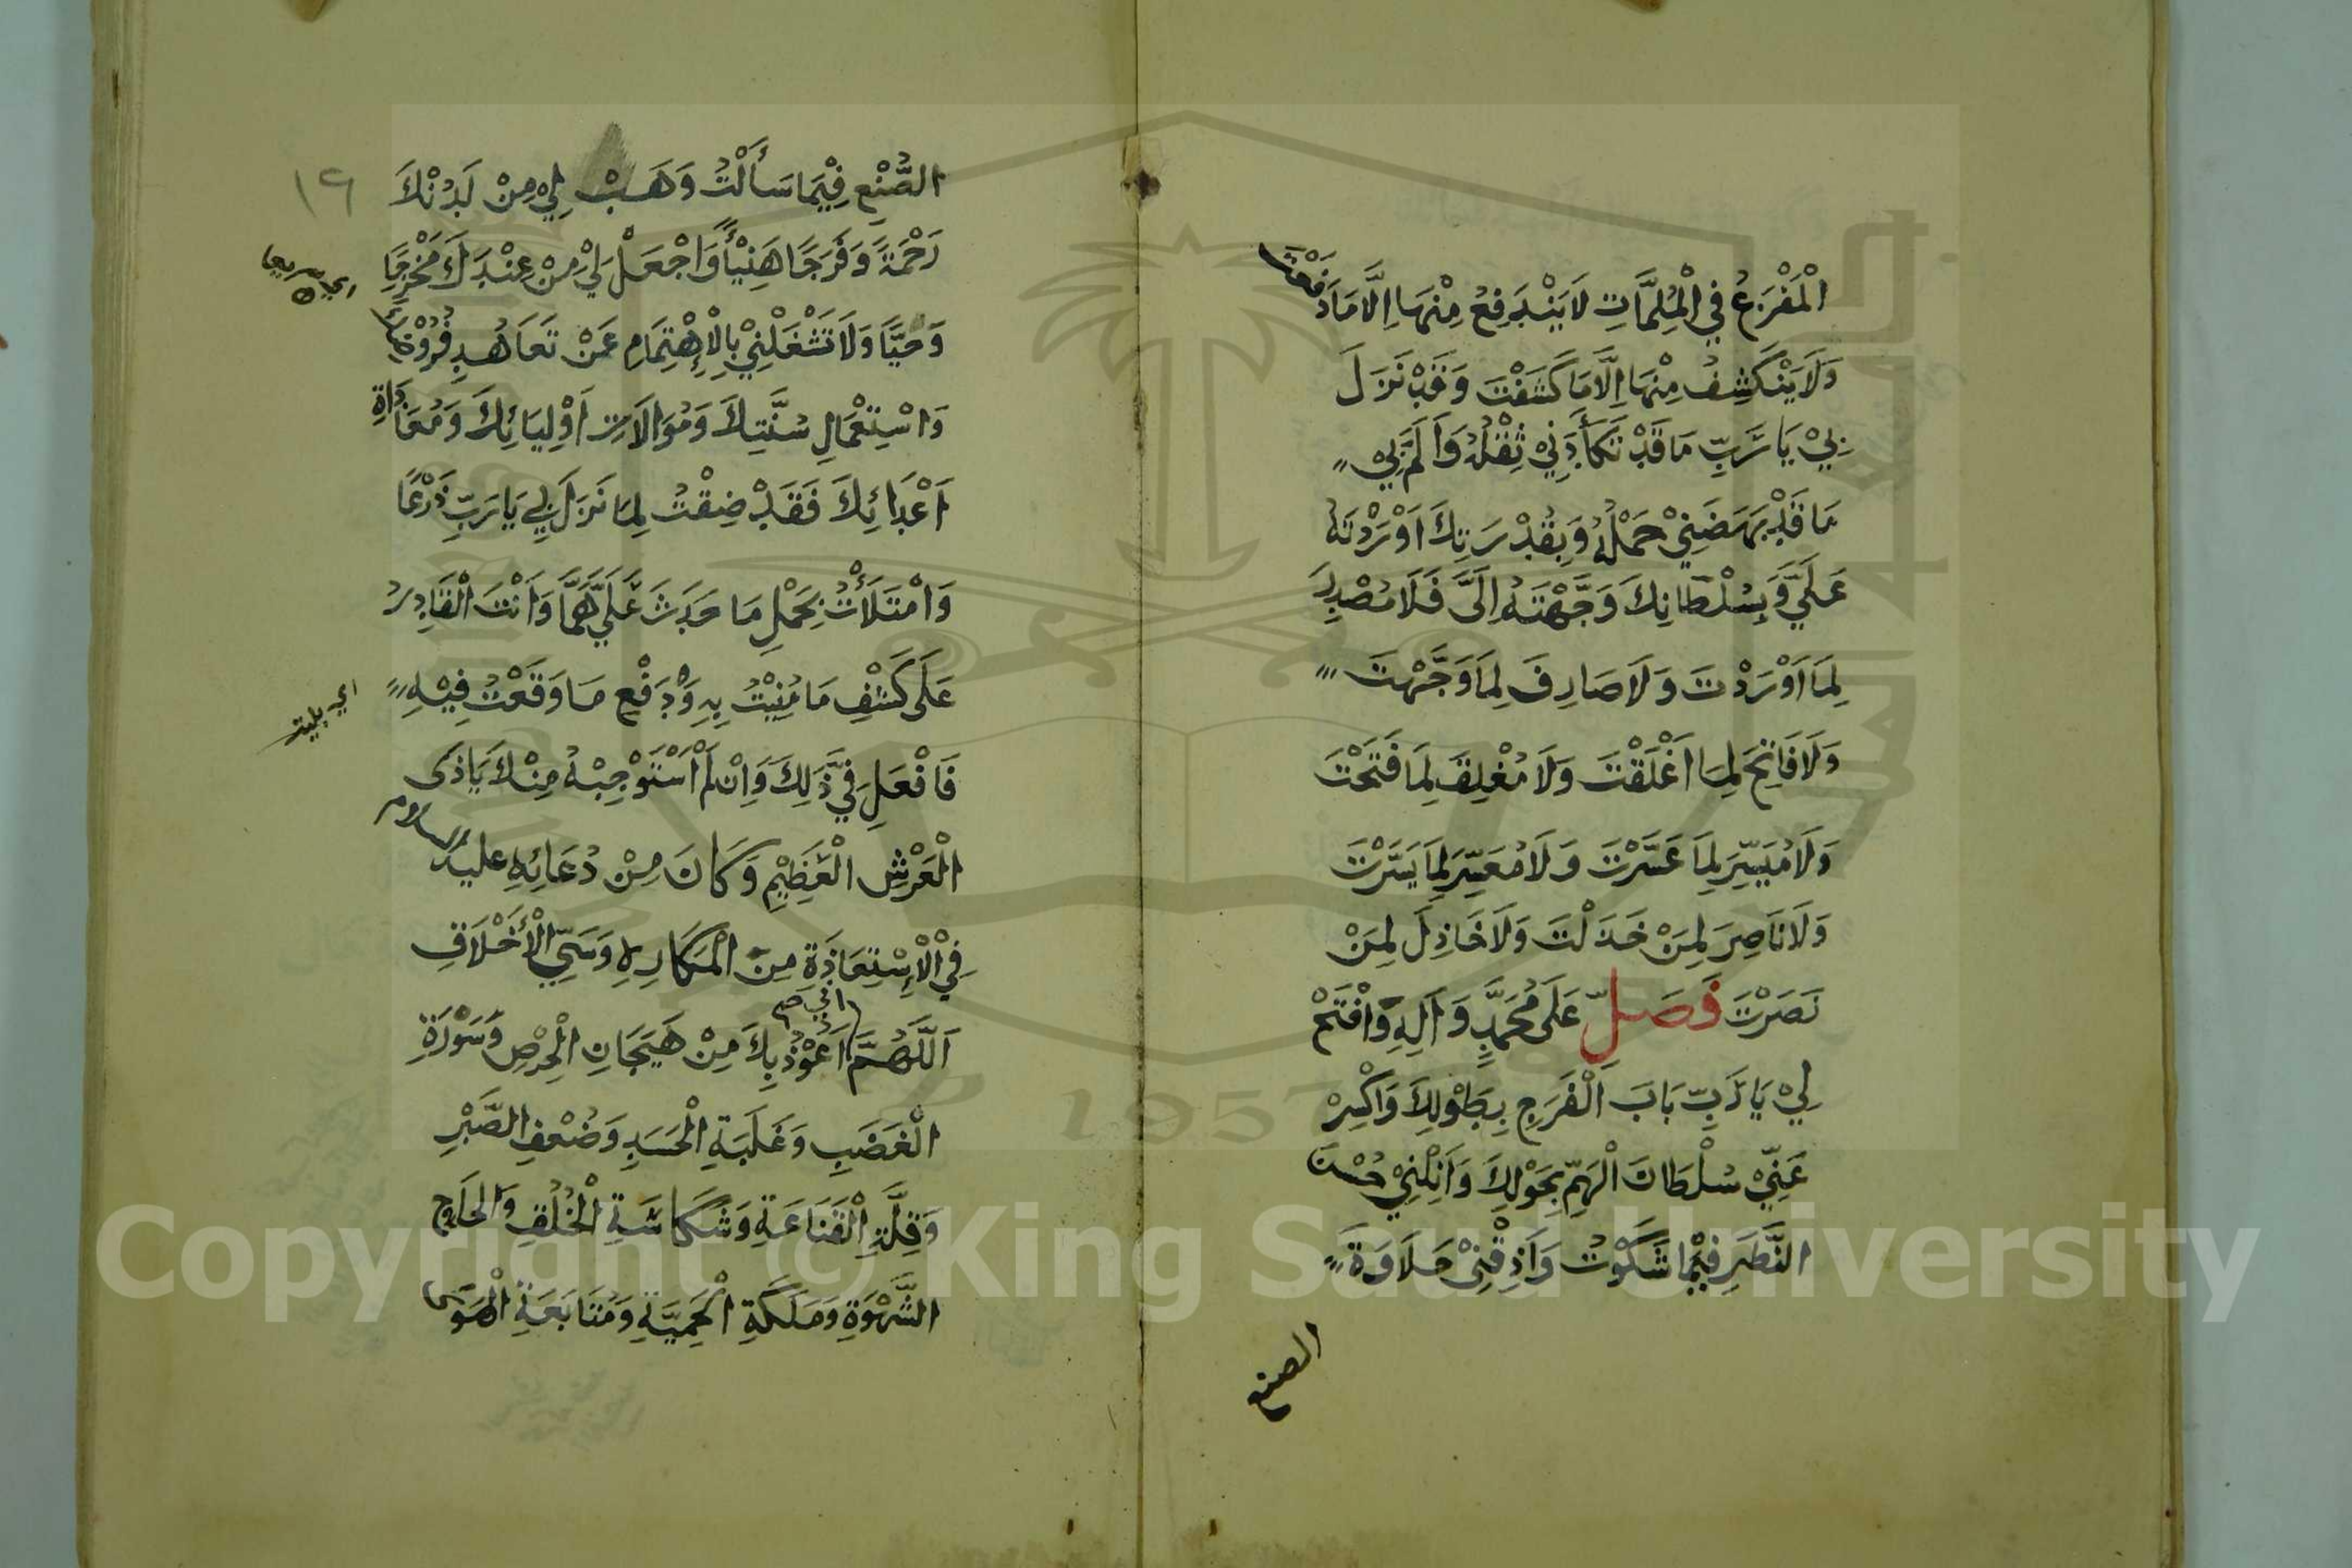 الْمَفْزَعُ فِي الْمُلِمَّاتِ لَا يَنْدَفِعُ مِنْهَا اِلَّا مَا دَفَعْتَ
وَلَا يَنْكَشِفُ مِنْهَا اِلَّا مَا كَشَفْتَ وَقَدْ نَزَلَ
بِيْ يَا رَبِّ مَا قَدْ تَكَأَّدَنِيْ ثِقْلُهُ وَاَلَمَّ بِيْ
مَا قَدْ بَهَضَنِيْ حَمْلُهُ وَبِقُدْرَتِكَ اَوْرَدْتَهُ
عَلَيَّ وَبِسُلْطَانِكَ وَجَّهْتَهُ اِلَيَّ فَلَا مُصْدِرَ
لِمَا اَوْرَدْتَ وَلَا صَارِفَ لِمَا وَجَّهْتَ
وَلَا فَاتِحَ لِمَا اَغْلَقْتَ وَلَا مُغْلِقَ لِمَا فَتَحْتَ
وَلَا مُيَسِّرَ لِمَا عَسَّرْتَ وَلَا مُعَسِّرَ لِمَا يَسَّرْتَ
وَلَا نَاصِرَ لِمَنْ خَذَلْتَ وَلَا خَاذِلَ لِمَنْ
نَصَرْتَ فَصَلِّ عَلَى مُحَمَّدٍ وَآلِهِ وَافْتَحْ
لِيْ يَا رَبِّ بَابَ الْفَرَجِ بِطَوْلِكَ وَاكْسِرْ
عَنِّيْ سُلْطَانَ الْهَمِّ بِحَوْلِكَ وَاَنِلْنِيْ حُسْنَ
النَّظَرِ فِيْمَا شَكَوْتُ وَاَذِقْنِيْ حَلَاوَةَ
الصنع
١٩
الصُّنْعِ فِيْمَا سَأَلْتُ وَهَبْ لِيْ مِنْ لَدُنْكَ
رَحْمَةً وَفَرَجًا هَنِيْأً وَاجْعَلْ لِيْ مِنْ عِنْدِكَ مَخْرَجًا
اي سريعا
وَحِيًّا وَلَا تَشْغَلْنِيْ بِالْاِهْتِمَامِ عَنْ تَعَاهُدِ فُرُوْضِكَ
وَاسْتِعْمَالِ سُنَّتِكَ وَمُوَالَاتِ اَوْلِيَائِكَ وَمُعَادَاةِ
اَعْدَائِكَ فَقَدْ ضِقْتُ لِمَا نَزَلَ بِيْ يَا رَبِّ ذَرْعًا
وَامْتَلَأْتُ بِحَمْلِ مَا حَدَثَ عَلَيَّ هَمًّا وَاَنْتَ الْقَادِرُ
عَلَى كَشْفِ مَا مُنِيْتُ بِهِ وَدَفْعِ مَا وَقَعْتُ فِيْهِ
اي بليت
فَافْعَلْ فِيْ ذٰلِكَ وَاِنْ لَمْ اَسْتَوْجِبْهُ مِنْكَ يَا ذَى
الْعَرْشِ الْعَظِيْمِ وَكَانَ مِنْ دُعَائِهِ عليه السلام
فِي الْاِسْتِعَاذَةِ مِنَ الْمَكَارِهِ وَسَيِّئِ الْأَخْلَاقِ
اَللّٰهُمَّ اني اَعُوْذُ بِكَ مِنْ هَيَجَانِ الْحِرْصِ وَسَوْرَةِ
الْغَضَبِ وَغَلَبَةِ الْحَسَدِ وَضُعْفِ الصَّبْرِ
وَقِلَّةِ الْقَنَاعَةِ وَشَكَاسَةِ الْخُلُقِ وَالْحَاحِ
الشَّهْوَةِ وَمَلَكَةِ الْحَمِيَّةِ وَمُتَابَعَةِ الْهَوَى
Copyright © King Saud University
1957